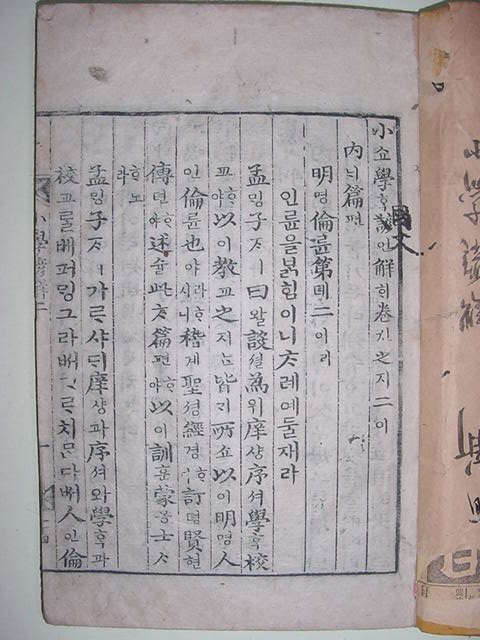 小쇼學ᄒᆞᆨ諺언解ᄒᆡ卷之지二이
內ᄂᆡ篇편
明명倫륜第뎨二이라
인륜을붉힘이니ᄎᆞ례예둘재라
孟ᄆᆡᆼ子ᄌᆞㅣ曰왈設셜爲위庠샹序셔學ᄒᆞᆨ校
교ᄒᆞ야以이敎교之지ᄂᆞᆫ皆ᄀᆡ所소以이明명人
인倫륜也야ㅣ라ᄒᆞ시니稽계聖셩經경ᄒᆞ며訂뎡賢현
傳뎐ᄒᆞ야述슐此ᄎᆞ篇편ᄒᆞ야以이訓훈蒙몽士ᄉᆞ
ᄒᆞ노라
孟ᄆᆡᆼ子ᄌᆞㅣᄀᆞᄅᆞ샤ᄃᆡ庠샹과序셔와學ᄒᆞᆨ과
校교ᄅᆞᆯ베퍼ᄆᆡᆼᄀᆞ라ᄡᅥᄀᆞᄅᆞ치믄다ᄡᅥ人인倫
小學諺解二